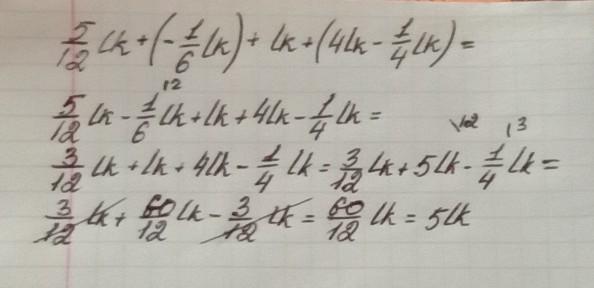 5/12 lk + (-1/6 lk) + lk + (4lk - 1/4 lk) =
5/12 lk - 1/6 \2 lk + lk + 4lk - 1/4 lk =
3/12 lk + lk + 4lk - 1/4 lk = 3/12 lk + 5lk \12 - 1/4 \3 lk =
3/12 lk + 60/12 lk - 3/12 lk = 60/12 lk = 5lk